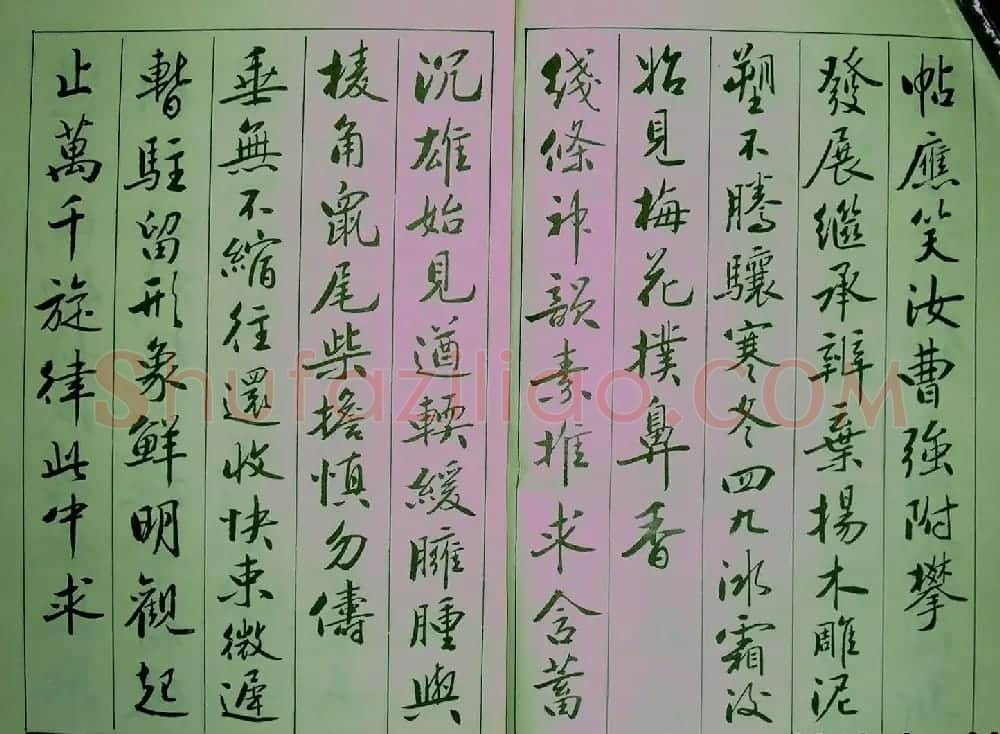 帖應笑汝曹強附攀
發展繼承辨棄揚木雕泥
塑不騰驤寒冬四九冰霜沒
始見梅花撲鼻香
綫條神韻素推求含蓄
沉雄始見遒輭緩臃腫與
棱角鼠尾柴擔慎勿儔
垂無不縮往還收快束微遲
暫駐留形象鮮明觀起
止萬千旋律此中求
Shufaziliao.COM